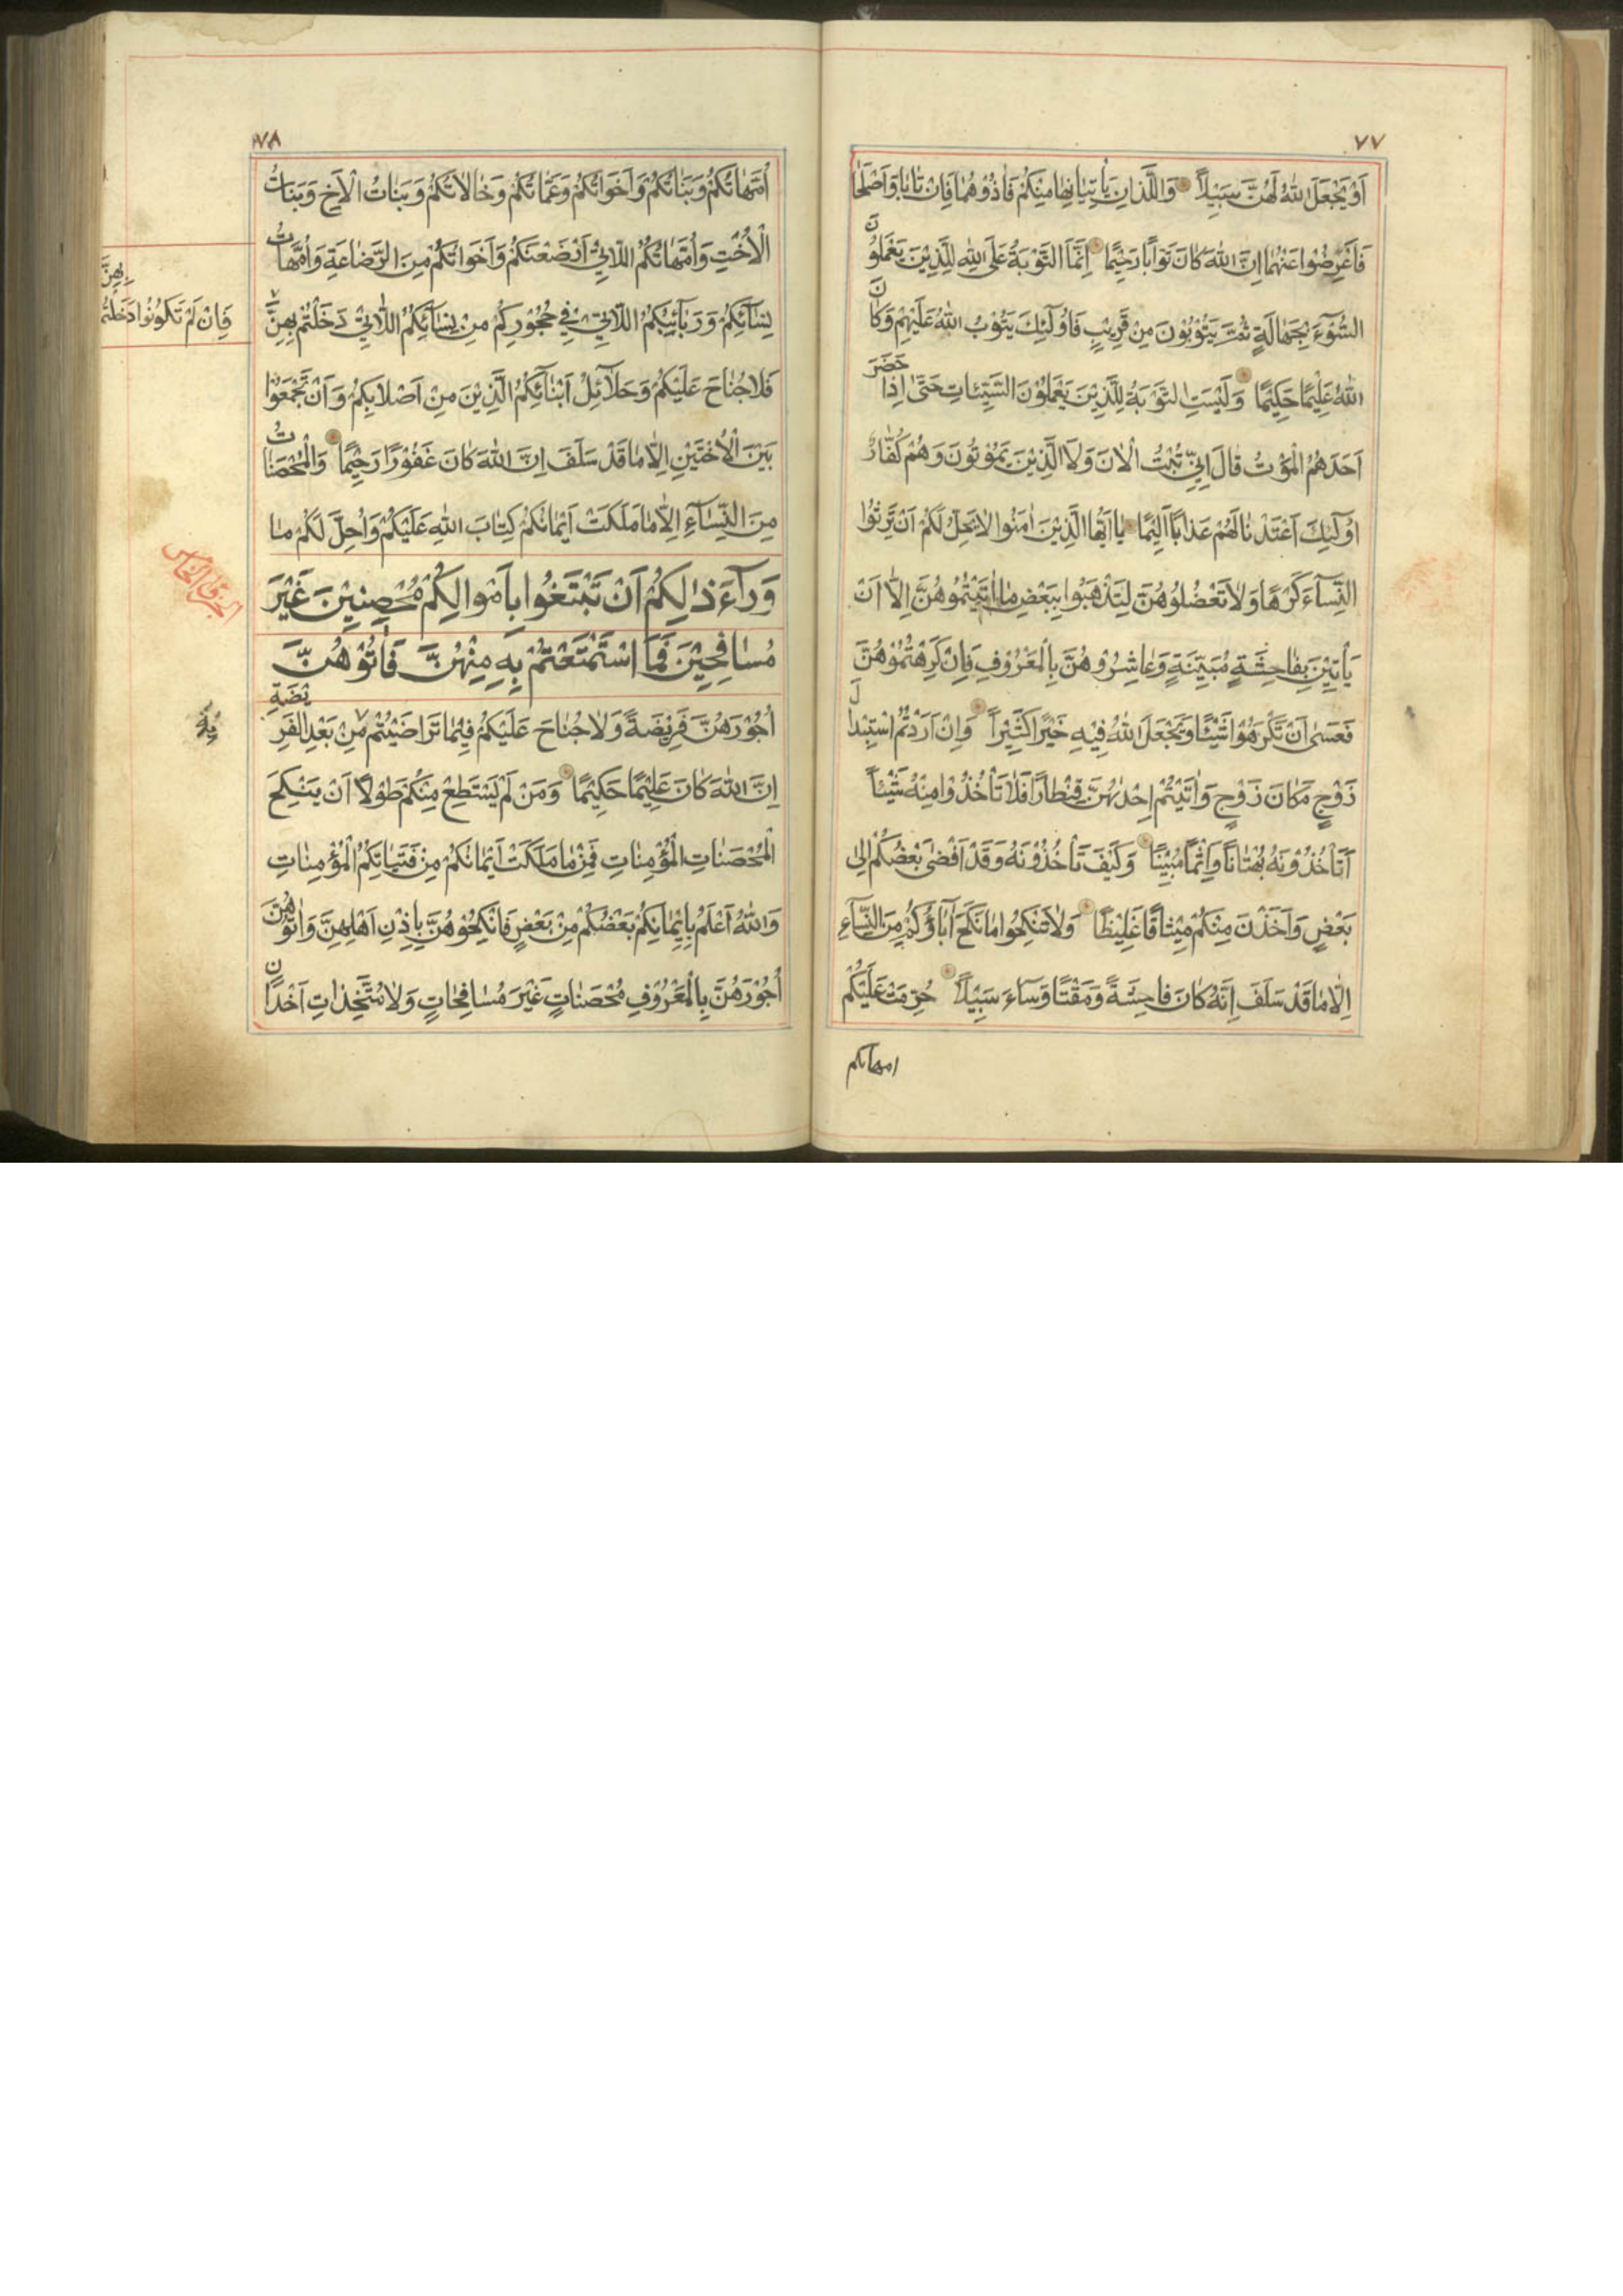 ٧٧
اَوْ يَجْعَلَ اللّٰهُ لَهُنَّ سَبِيْلاً وَالَّذَانِ يَأْتِيَانِهَا مِنْكُمْ فَاٰذُوْهُمَا فَاِنْ تَابَا وَاَصْلَحَا
فَاَعْرِضُوْا عَنْهُمَا اِنَّ اللّٰهَ كَانَ تَوَّابًا رَحِيْمًا اِنَّمَا التَّوْبَةُ عَلَى اللّٰهِ لِلَّذِيْنَ يَعْمَلُوْنَ
السُّوْٓءَ بِجَهَالَةٍ ثُمَّ يَتُوْبُوْنَ مِنْ قَرِيْبٍ فَاُولٰٓئِكَ يَتُوْبُ اللّٰهُ عَلَيْهِمْ وَكَانَ
اللّٰهُ عَلِيْمًا حَكِيْمًا وَلَيْسَتِ التَّوْبَةُ لِلَّذِيْنَ يَعْمَلُوْنَ السَّيِّئَاتِ حَتّٰى اِذَا حَضَرَ
اَحَدَهُمُ الْمَوْتُ قَالَ اِنِّيْ تُبْتُ الْاٰنَ وَلَا الَّذِيْنَ يَمُوْتُوْنَ وَهُمْ كُفَّارٌ
اُولٰٓئِكَ اَعْتَدْنَا لَهُمْ عَذَابًا اَلِيْمًا يَا اَيُّهَا الَّذِيْنَ اٰمَنُوْا لَا يَحِلُّ لَكُمْ اَنْ تَرِثُوْا
النِّسَآءَ كَرْهًا وَلَا تَعْضُلُوْهُنَّ لِتَذْهَبُوْا بِبَعْضِ مَا اٰتَيْتُمُوْهُنَّ اِلَّا اَنْ
يَأْتِيْنَ بِفَاحِشَةٍ مُبَيِّنَةٍ وَعَاشِرُوْهُنَّ بِالْمَعْرُوْفِ فَاِنْ كَرِهْتُمُوْهُنَّ
فَعَسٰى اَنْ تَكْرَهُوْا شَيْئًا وَيَجْعَلَ اللّٰهُ فِيْهِ خَيْرًا كَثِيْرًا وَاِنْ اَرَدْتُمُ اسْتِبْدَالَ
زَوْجٍ مَكَانَ زَوْجٍ وَاٰتَيْتُمْ اِحْدٰىهُنَّ قِنْطَارًا فَلَا تَأْخُذُوْا مِنْهُ شَيْئًا
اَتَأْخُذُوْنَهُ بُهْتَانًا وَاِثْمًا مُبِيْنًا وَكَيْفَ تَأْخُذُوْنَهُ وَقَدْ اَفْضٰى بَعْضُكُمْ اِلٰى
بَعْضٍ وَاَخَذْنَ مِنْكُمْ مِيْثَاقًا غَلِيْظًا وَلَا تَنْكِحُوْا مَا نَكَحَ اٰبَاؤُكُمْ مِنَ النِّسَآءِ
اِلَّا مَا قَدْ سَلَفَ اِنَّهُ كَانَ فَاحِشَةً وَمَقْتًا وَسَآءَ سَبِيْلاً حُرِّمَتْ عَلَيْكُمْ
امهاتكم
٧٨
اُمَّهَاتُكُمْ وَبَنَاتُكُمْ وَاَخَوَاتُكُمْ وَعَمَّاتُكُمْ وَخَالَاتُكُمْ وَبَنَاتُ الْاَخِ وَبَنَاتُ
الْاُخْتِ وَاُمَّهَاتُكُمُ اللَّاتِيْ اَرْضَعْنَكُمْ وَاَخَوَاتُكُمْ مِنَ الرَّضَاعَةِ وَاُمَّهَاتُ
نِسَآئِكُمْ وَرَبَآئِبُكُمُ اللَّاتِيْ فِيْ حُجُوْرِكُمْ مِنْ نِسَآئِكُمُ اللَّاتِيْ دَخَلْتُمْ بِهِنَّ
فَاِنْ لَمْ تَكُوْنُوْا دَخَلْتُمْ بِهِنَّ
فَلَا جُنَاحَ عَلَيْكُمْ وَحَلَآئِلُ اَبْنَآئِكُمُ الَّذِيْنَ مِنْ اَصْلَابِكُمْ وَاَنْ تَجْمَعُوْا
بَيْنَ الْاُخْتَيْنِ اِلَّا مَا قَدْ سَلَفَ اِنَّ اللّٰهَ كَانَ غَفُوْرًا رَحِيْمًا وَالْمُحْصَنَاتُ
مِنَ النِّسَآءِ اِلَّا مَا مَلَكَتْ اَيْمَانُكُمْ كِتَابَ اللّٰهِ عَلَيْكُمْ وَاُحِلَّ لَكُمْ مَا
الجزؤ الخامس
وَرَآءَ ذٰلِكُمْ اَنْ تَبْتَغُوْا بِاَمْوَالِكُمْ مُحْصِنِيْنَ غَيْرَ
مُسَافِحِيْنَ فَمَا اسْتَمْتَعْتُمْ بِهِ مِنْهُنَّ فَاٰتُوْهُنَّ
اُجُوْرَهُنَّ فَرِيْضَةً وَلَا جُنَاحَ عَلَيْكُمْ فِيْمَا تَرَاضَيْتُمْ مِنْ بَعْدِ الْفَرِيْضَةِ
بِهِ
اِنَّ اللّٰهَ كَانَ عَلِيْمًا حَكِيْمًا وَمَنْ لَمْ يَسْتَطِعْ مِنْكُمْ طَوْلاً اَنْ يَنْكِحَ
الْمُحْصَنَاتِ الْمُؤْمِنَاتِ فَمِنْ مَا مَلَكَتْ اَيْمَانُكُمْ مِنْ فَتَيَاتِكُمُ الْمُؤْمِنَاتِ
وَاللّٰهُ اَعْلَمُ بِاِيْمَانِكُمْ بَعْضُكُمْ مِنْ بَعْضٍ فَانْكِحُوْهُنَّ بِاِذْنِ اَهْلِهِنَّ وَاٰتُوْهُنَّ
اُجُوْرَهُنَّ بِالْمَعْرُوْفِ مُحْصَنَاتٍ غَيْرَ مُسَافِحَاتٍ وَلَا مُتَّخِذَاتِ اَخْدَانٍ